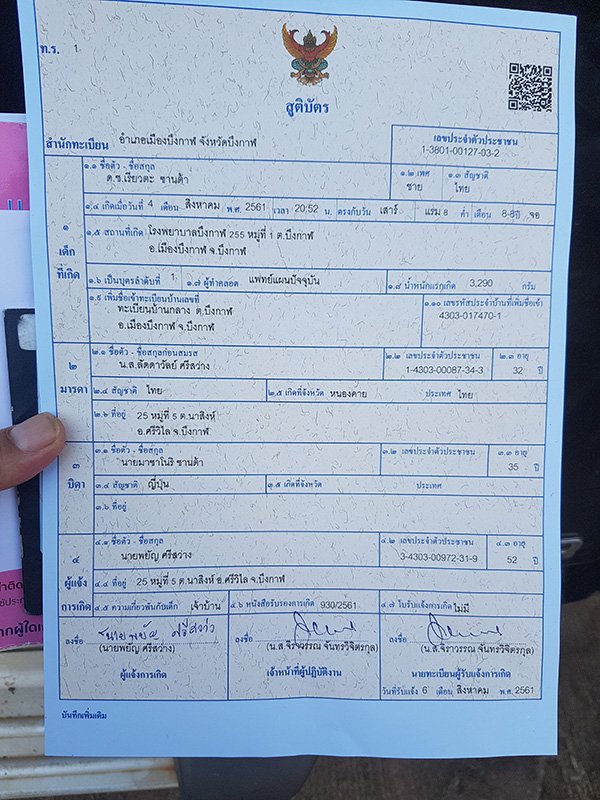 ท.ร. 1
สูติบัตร
สำนักทะเบียน อำเภอเมืองบึงกาฬ จังหวัดบึงกาฬ
เลขประจำตัวประชาชน
1-3801-00127-03-2
๑
เด็ก
ที่เกิด
๑.๑ ชื่อตัว - ชื่อสกุล
ด.ช.เรียวตะ ซานด้า
๑.๒ เพศ
ชาย
๑.๓ สัญชาติ
ไทย
๑.๔ เกิดเมื่อวันที่ 4 เดือน สิงหาคม พ.ศ. 2561 เวลา 20:52 น. ตรงกับวัน เสาร์ แรม 8 ค่ำ เดือน 8-8 ปี จอ
๑.๕ สถานที่เกิด โรงพยาบาลบึงกาฬ 255 หมู่ที่ 1 ต.บึงกาฬ
อ.เมืองบึงกาฬ จ.บึงกาฬ
๑.๖ เป็นบุตรลำดับที่ 1 ๑.๗ ผู้ทำคลอด แพทย์แผนปัจจุบัน ๑.๘ น้ำหนักแรกเกิด 3,290 กรัม
๑.๙ เพิ่มชื่อเข้าทะเบียนบ้านเลขที่
ทะเบียนบ้านกลาง ต.บึงกาฬ
อ.เมืองบึงกาฬ จ.บึงกาฬ
๑.๑๐ เลขรหัสประจำบ้านที่เพิ่มชื่อเข้า
4303-017470-1
๒
มารดา
๒.๑ ชื่อตัว - ชื่อสกุลก่อนสมรส
น.ส.ลัดดาวัลย์ ศรีสว่าง
๒.๒ เลขประจำตัวประชาชน
1-4303-00087-34-3
๒.๓ อายุ
32 ปี
๒.๔ สัญชาติ ไทย ๒.๕ เกิดที่จังหวัด หนองคาย ประเทศ ไทย
๒.๖ ที่อยู่ 25 หมู่ที่ 5 ต.นาสิงห์
อ.ศรีวิไล จ.บึงกาฬ
๓
บิดา
๓.๑ ชื่อตัว - ชื่อสกุล
นายมาซาโนริ ซานด้า
๓.๒ เลขประจำตัวประชาชน
๓.๓ อายุ
35 ปี
๓.๔ สัญชาติ ญี่ปุ่น ๓.๕ เกิดที่จังหวัด ประเทศ
๓.๖ ที่อยู่
๔
ผู้แจ้ง
การเกิด
๔.๑ ชื่อตัว - ชื่อสกุล
นายพยัญ ศรีสว่าง
๔.๒ เลขประจำตัวประชาชน
3-4303-00972-31-9
๔.๓ อายุ
52 ปี
๔.๔ ที่อยู่ 25 หมู่ที่ 5 ต.นาสิงห์ อ.ศรีวิไล จ.บึงกาฬ
๔.๕ ความเกี่ยวพันกับเด็ก เจ้าบ้าน ๔.๖ หนังสือรับรองการเกิด 930/2561 ๔.๗ ใบรับแจ้งการเกิด ไม่มี
ลงชื่อ นายพยัญ ศรีสว่าง
(นายพยัญ ศรีสว่าง)
ผู้แจ้งการเกิด
ลงชื่อ
(น.ส.จิราวรรณ จันทรวิจิตรกุล)
เจ้าหน้าที่ผู้ปฏิบัติงาน
ลงชื่อ
(น.ส.จิราวรรณ จันทรวิจิตรกุล)
นายทะเบียนผู้รับแจ้งการเกิด
วันที่รับแจ้ง 6 เดือน สิงหาคม พ.ศ. 2561
บันทึกเพิ่มเติม